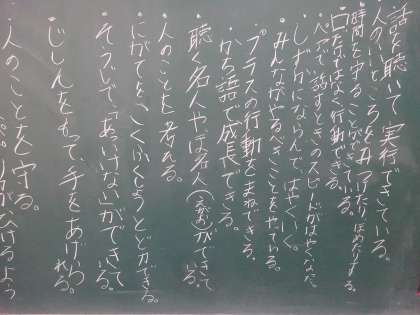 話を聴いて実行できている。
人のいいところをみつけたりほめたりする。
時間を守ることができている。
口だけではなく行動できる。
ペアで、話すときのスピードがはやくなった。
しずかにならんで、はやくいく。
みんながやるべきことをやっている。
プラスの行動をまねできる。
かち語で成長できる。
聴く名人やほ名人(えがお)ができている。
人のことを考える。
にがてを、こくふくしようとどりょくできる。
そうじで「あいけない」ができている。
じしんをもって、手をあげられる。
人のことを守る。